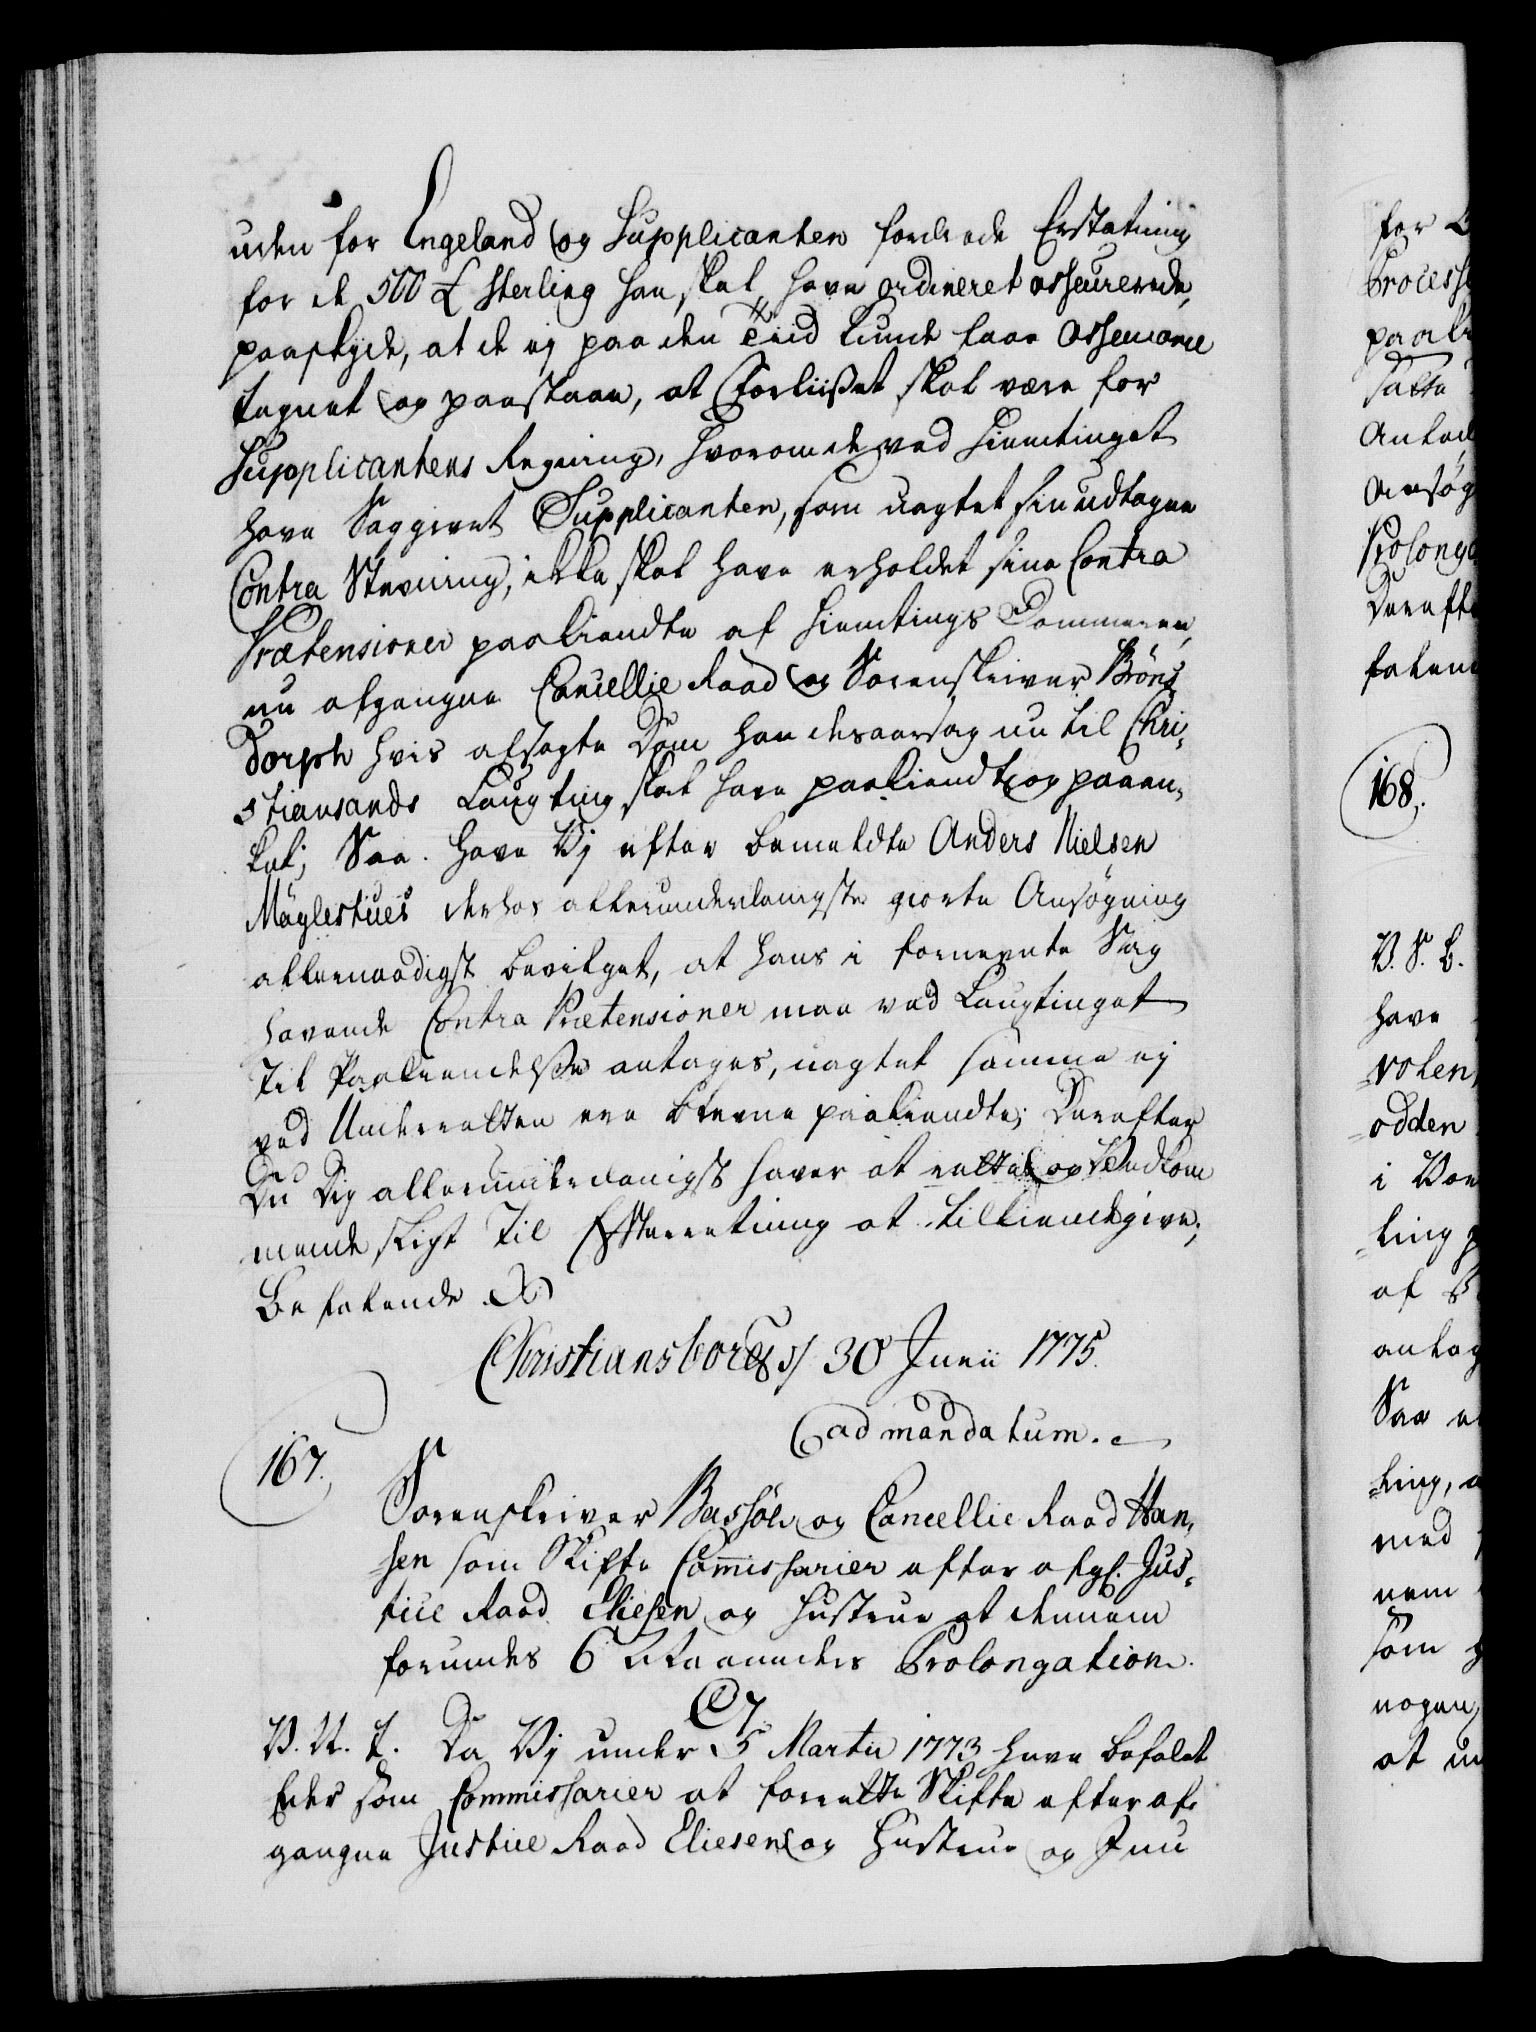 uden for Engeland og Supplicanten fordrede Erstatning
for de 500 £ Sterling han skal have ordineret asseurerede,
paaskyde, at de ej paa den Tiid kunde faae Asseurance
tegnet og paastaae, at Forliiset skal være for
Supplicantens Regning, hvorom de ved Hiemtinget
have Saggivet Supplicanten, som uagtet sin udtagne
Contra Stevning, ikke skal have erholdet sine Contra
Prætensioner paakiendte af Hiemtings Dommeren,
nu afgangne Cancellie Raad og Sorenskriver Bröns-
dorph hvis afsagte Dom han desaarsag nu til Chri-
stiansands Laugting skal have paakiendt og paaan-
ket; Saa have Vj efter bemeldte Anders Nielsen
Mäglestues derhos allerunderdanigste giorte Ansøgning
allernaadigst bevilget, at hans i fornevnte Sag
havende Contra Prætensioner maa ved Laugtinget
til Paakiendelse antages, uagtet samme ej
ved Underretten ere blevne paakiendte; Derefter
Du Dig allerunderdanigst haver at rette og Vedkom
mende sligt til Efterretning at tilkiendegive;
Befalende
Christiansborg d/ 30 Junii 1775.
ad mandatum.
167.
Sorenskriver Bassöe og Cancellie Raad Han-
sen som Skifte Commissarier efter afg: Jus-
tice Raad Eliesen og Hustrue at dennem
forundes 6 Maaneders Prolongation.
C7.
V. U. T. Da Vj under 5 Martii 1773 have befalet
Eder som Commissarier at forrette Skifte efter af-
gangne Justice Raad Eliesen og Hustrue og I nu
for
Processe
paaki
satte
Anled
Ansøg
Prolonga
Dereft
falend
168.
V. S. B.
have
volen
odden
i Vor
ling
af
antag
Saa
ling,
med
nem
som
nogen
at